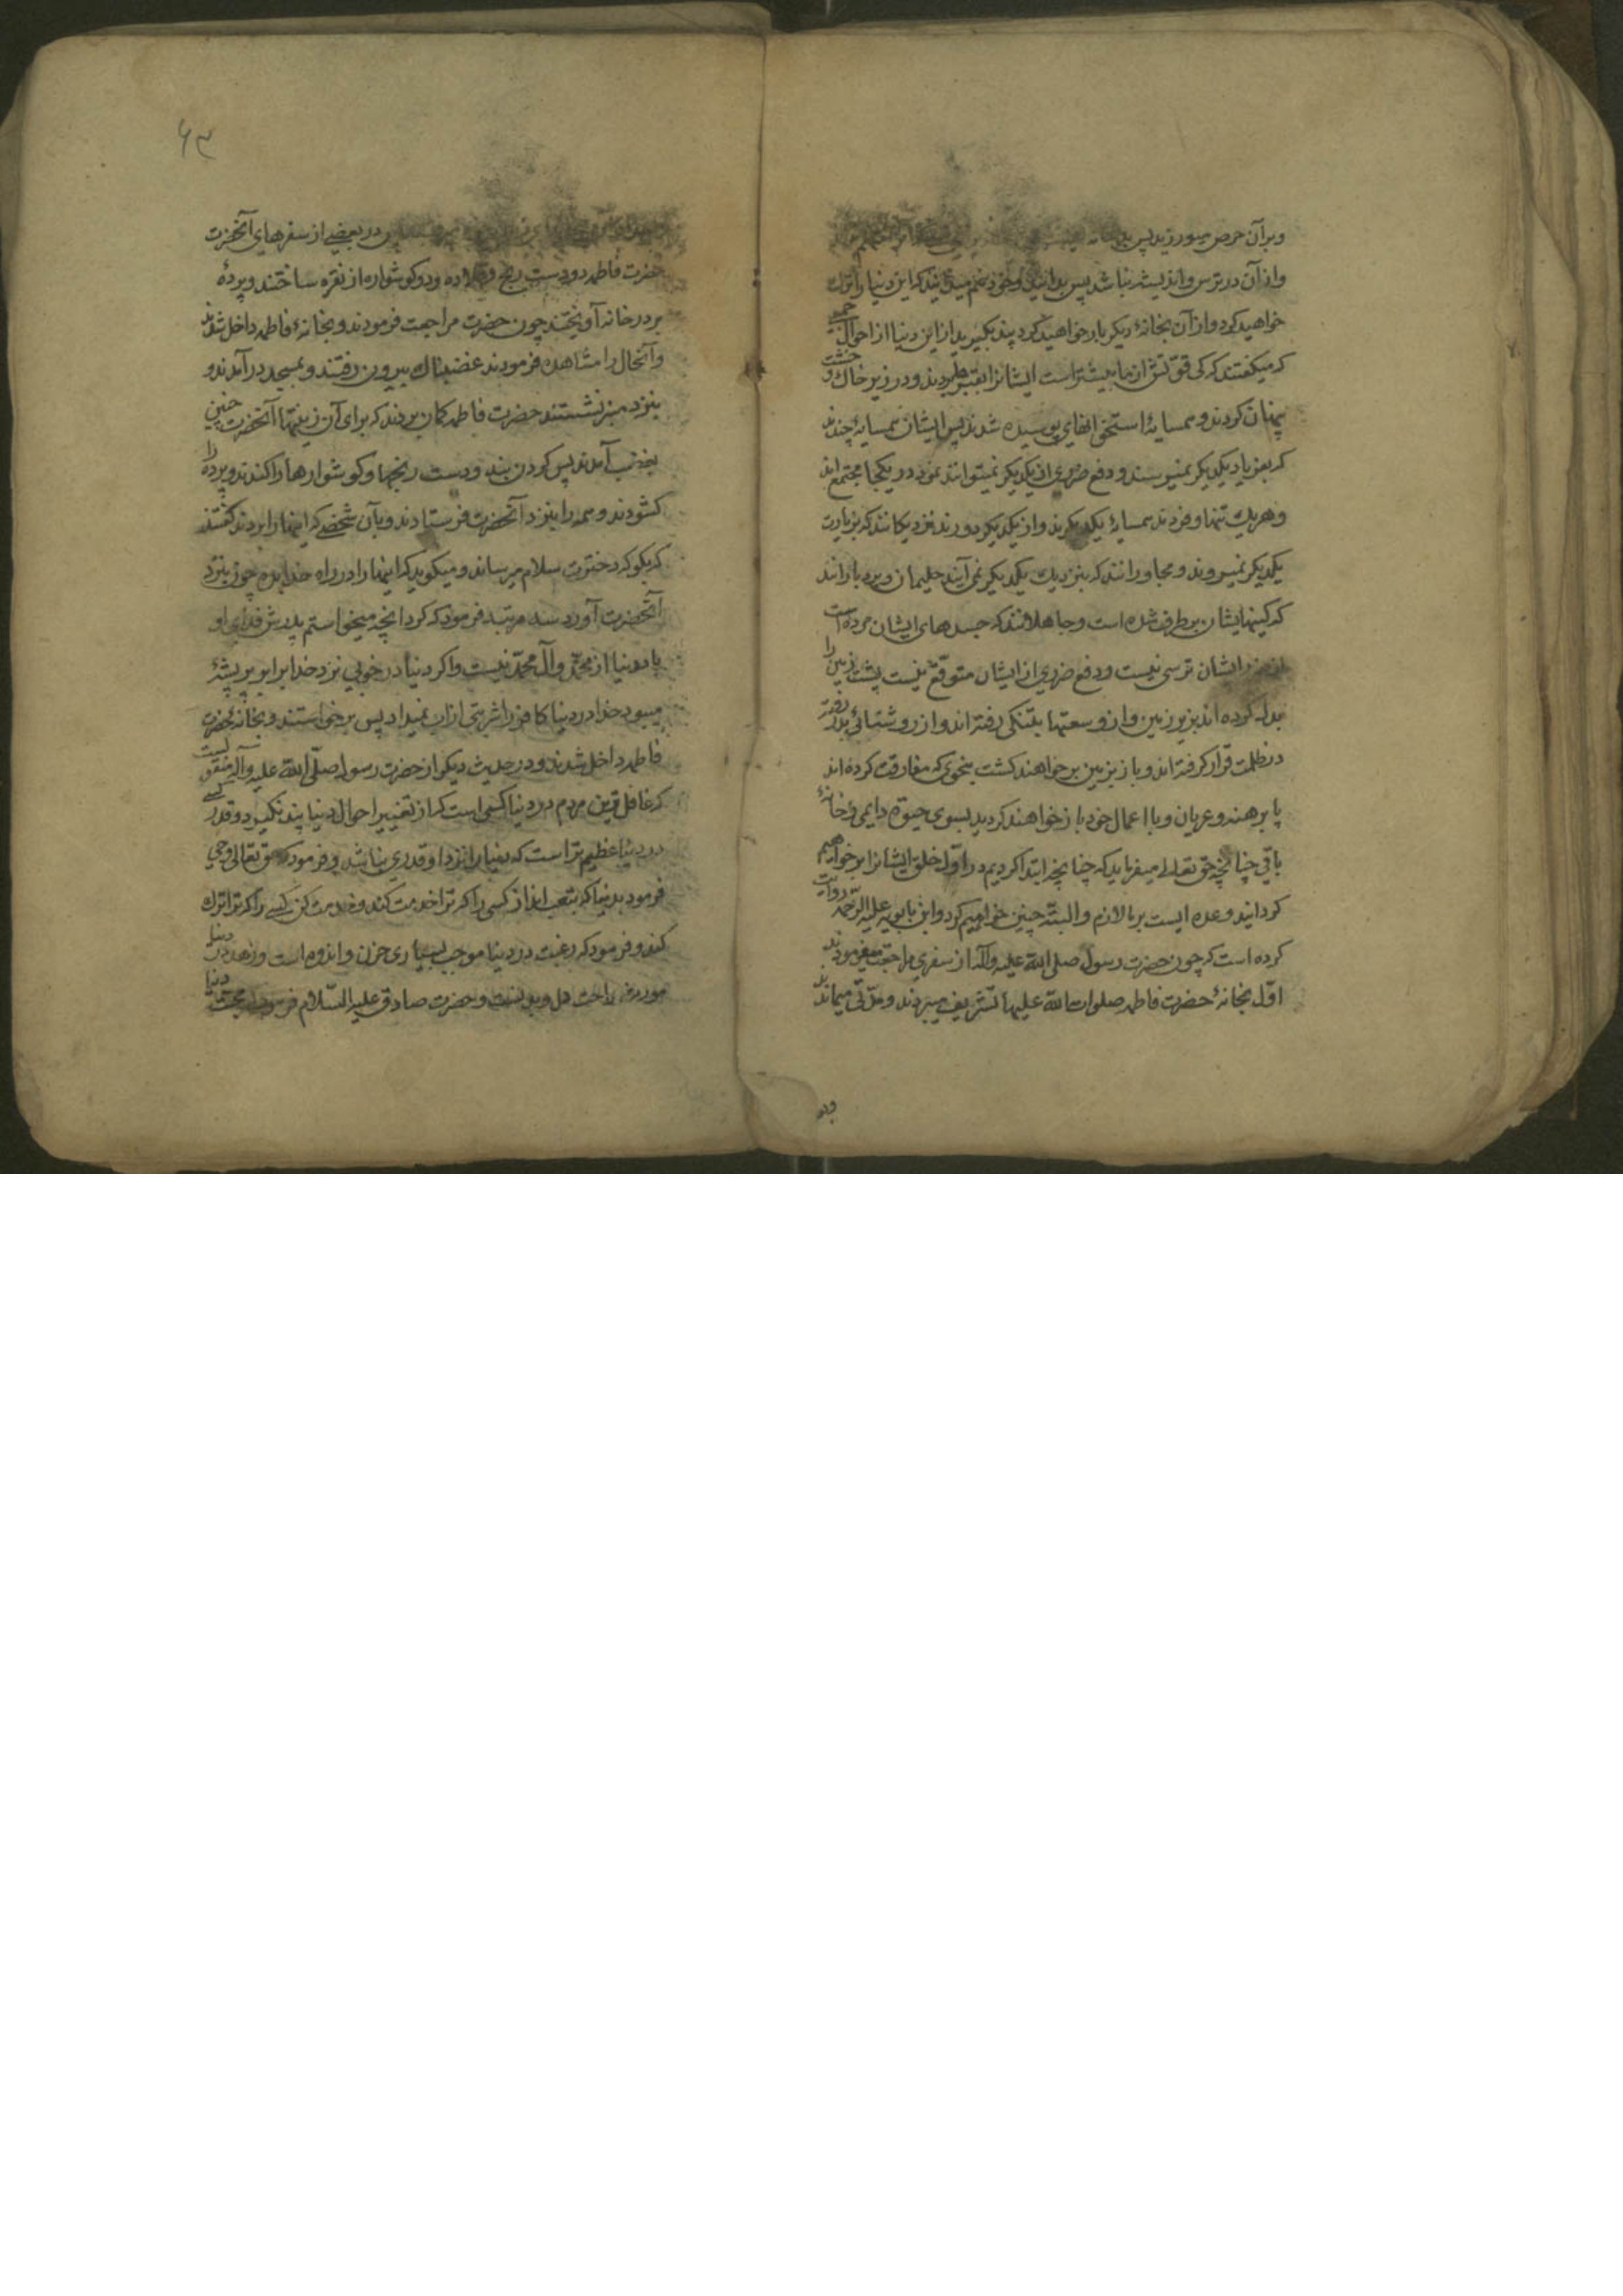 وبر آن حرص میورزید پس بد خانه
واز آن در ترس واندیشه نباشد پس بدانید وخود هم میدانید که این دنیا را ترک
خواهید کرد واز آن بخانهٔ دیگر بار خواهید کرد پند بگیرید از این دنیا از احوال جمعی
که میگفتند که کی قوتش از ما بیشتر است ایشانرا بقبر بردند ودر زیر خاک وخشت
پنهان کردند وهمسایهٔ استخوانهای پوسیده شدند پس ایشان همسایهٔ چندند
که بفریاد یکدیگر نمیرسند ودفع ضرری از یکدیگر نمیتوانند نمود در یکجا مجتمع اند
وهر یک تنها وفردند همسایهٔ یکدیگرند واز یکدیگر دورند نزدیکانند که بزیارت
یکدیگر نمیروند ومجاورانند که بنزدیک یکدیگر نمی آیند حلیمان وبردبارانند
که کینهایشان برطرف شده است وجاهلانند که حسدهای ایشان مرده است
از ضرر ایشان ترسی نیست ودفع ضرری از ایشان متوقع نیست پشت زمین را
بدل کرده اند بزیر زمین واز وسعتها بتنگی رفته اند واز روشنائی بدر رفته
در ظلمت قرار گرفته اند وباز بزمین بر خواهند گشت بنحوی که مفارقت کرده اند
پا برهنه وعریان وبا اعمال خود باز خواهند گردید بسوی حیوة دایمی وخانهٔ
باقی چنانچه حق تعالی میفرماید که چنانچه ابتدا کردیم در اول خلق ایشانرا برخواهیم
گردانید وعده ایست بر ما لازم والبته چنین خواهیم کرد وابن بابویه علیه الرحمه روایت
کرده است که چون حضرت رسول صلی الله علیه وآله از سفری مراجعت میفرمودند
اول بخانهٔ حضرت فاطمه صلوات الله علیها تشریف میبردند ومدتی میماندند
در بعضی از سفرهای آنحضرت
حضرت فاطمه دو دست رنج وقلاده ودو گوشواره از نقره ساختند وپردهٔ
بر در خانه آویختند چون حضرت مراجعت فرمودند وبخانهٔ فاطمه داخل شدند
وآنحال را مشاهده فرمودند غضبناک بیرون رفتند وبمسجد در آمدند و
بنزد منبر نشستند حضرت فاطمه گمان بردند که برای آن زینتها آنحضرت چنین
بغضب آمدند پس گردن بند ودست رنجها وگوشوارها را کندند وپرده را
گشودند وهمه را بنزد آنحضرت فرستادند وبآن شخصی که اینها را بردند گفتند
که بگو که دخترت سلام میرساند ومیگوید که اینها را در راه خدا بده چون بنزد
آنحضرت آورد سه مرتبه فرمود که کرد آنچه میخواستم پدرش فدای او
باد دنیا از محمد وآل محمد نیست واگر دنیا در خوبی نزد خدا برابر پر پشهٔ
میبود خدا در دنیا کافر را شربتی از آب نمیداد پس برخواستند وبخانهٔ حضرت
فاطمه داخل شدند ودر حدیث دیگر از حضرت رسول صلی الله علیه وآله منقولست
که غافل ترین مردم در دنیا کسی است که از تغییر احوال دنیا پند نگیرد وقدر کسی
در دنیا عظیم تر است که دنیا را نزد او قدری نباشد وفرمود که حق تعالی وحی
فرمود بدنیا که بتعب انداز کسی را که ترا خدمت کند وخدمت کن کسی را که ترا ترک
کند وفرمود که رغبت در دنیا موجب بسیاری حزن واندوه است وزهد در دنیا
مورث راحت دل وبدنست وحضرت صادق علیه السلام فرمود که محبت دنیا